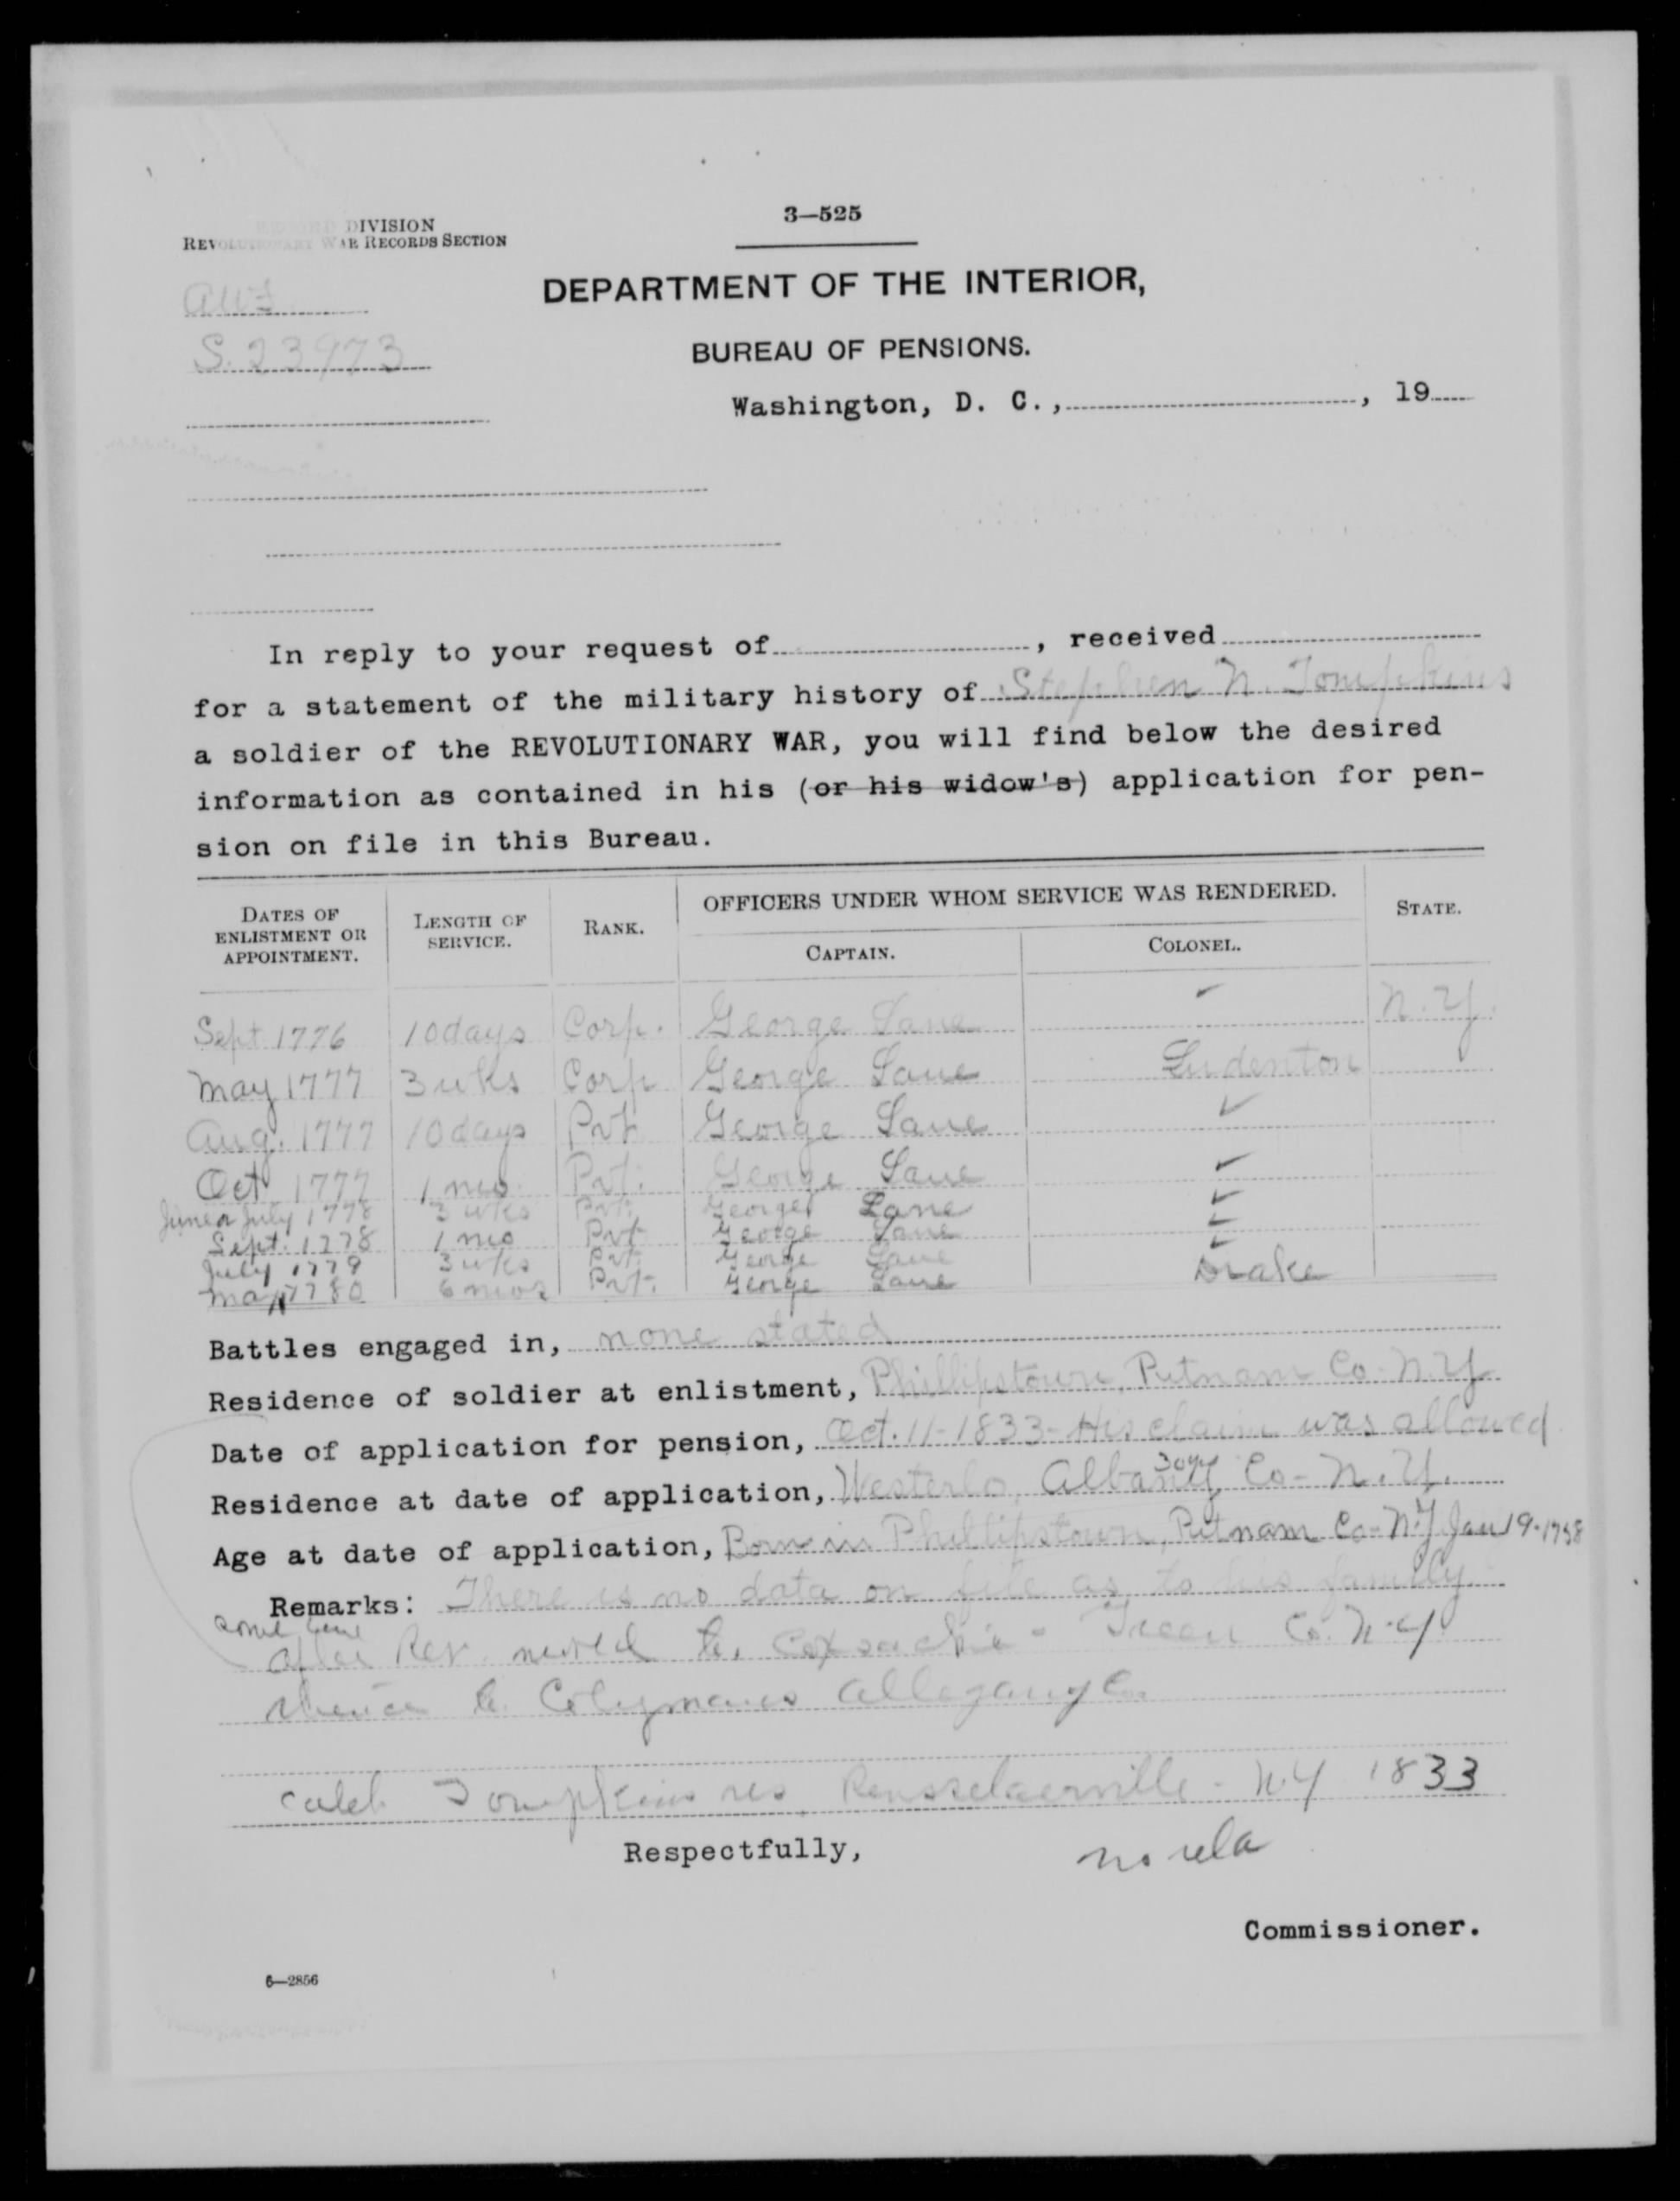 3—525
RECORD DIVISION
REVOLUTIONARY WAR RECORDS SECTION
DEPARTMENT OF THE INTERIOR,
S. 23973
BUREAU OF PENSIONS.
Washington, D. C., , 19
In reply to your request of , received
for a statement of the military history of Stephen N. Tompkins
a soldier of the REVOLUTIONARY WAR, you will find below the desired
information as contained in his (or his widow's) application for pen-
sion on file in this Bureau.
DATES OF ENLISTMENT OR APPOINTMENT. LENGTH OF SERVICE. RANK. OFFICERS UNDER WHOM SERVICE WAS RENDERED. STATE.
CAPTAIN. COLONEL.
Sept 1776 10 days Corp. George Lane ✓ N.Y.
May 1777 3 wks Corp George Lane Ludenton
Aug. 1777 10 days Pvt George Lane ✓
Oct 1777 1 mo Pvt. George Lane ✓
June or July 1778 3 wks Pvt. George Lane ✓
Sept. 1778 1 mo Pvt George Lane ✓
July 1779 3 wks Pvt. George Lane ✓
May 1780 6 mos Pvt. George Lane Drake
Battles engaged in, none stated
Residence of soldier at enlistment, Phillipstown, Putnam Co. N.Y.
Date of application for pension, Oct. 11-1833- His claim was allowed
Residence at date of application, Westerlo, Albany Co- N.Y.
Age at date of application, Born in Phillipstown, Putnam Co- N.Y Jan 19-1758
Remarks: There is no data on file as to his family.
some time
after Rev. moved to Coxsackie - Green Co. N.Y
thence to Colymans Allegany Co.
Caleb Tompkins res. Rensselaerville - N.Y 1833
Respectfully, no rela
Commissioner.
6—2856